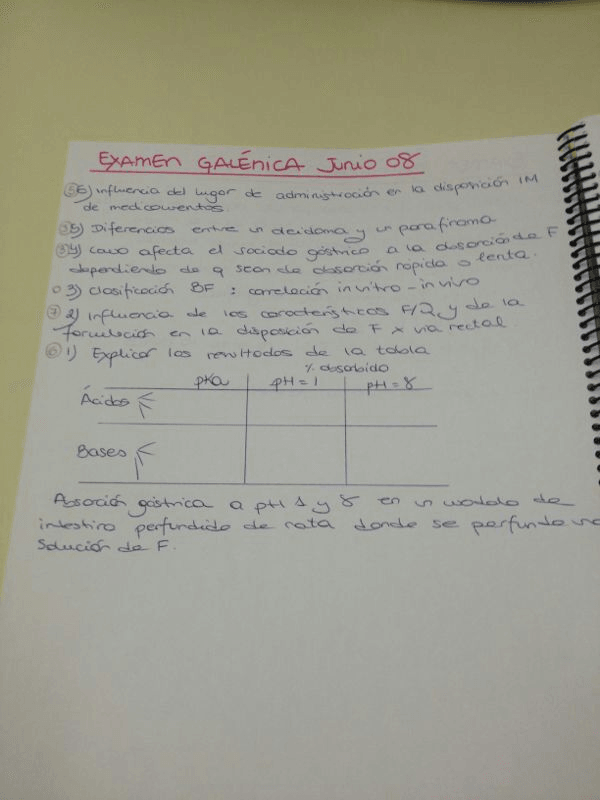 EXAMEN GALÉNICA JUNIO 08
6) Influencia del lugar de administración en la disposición IM
de medicamentos.
5) Diferencias entre un y un
4) Como afecta el vaciado gástrico a la absorción de F
dependiendo de q sean de absorción rápida o lenta.
3) Clasificación BF : correlación in vitro - in vivo
7 2) Influencia de las características F/Q y de la
formulación en la disposición de F x vía rectal.
6 1) Explicar los resultados de la tabla
% absorbido
pKa pH = 1 pH = 8
Ácidos
Bases
Absorción gástrica a pH 1 y 8 en un modelo de
intestino perfundido de rata donde se perfunde una
solución de F.